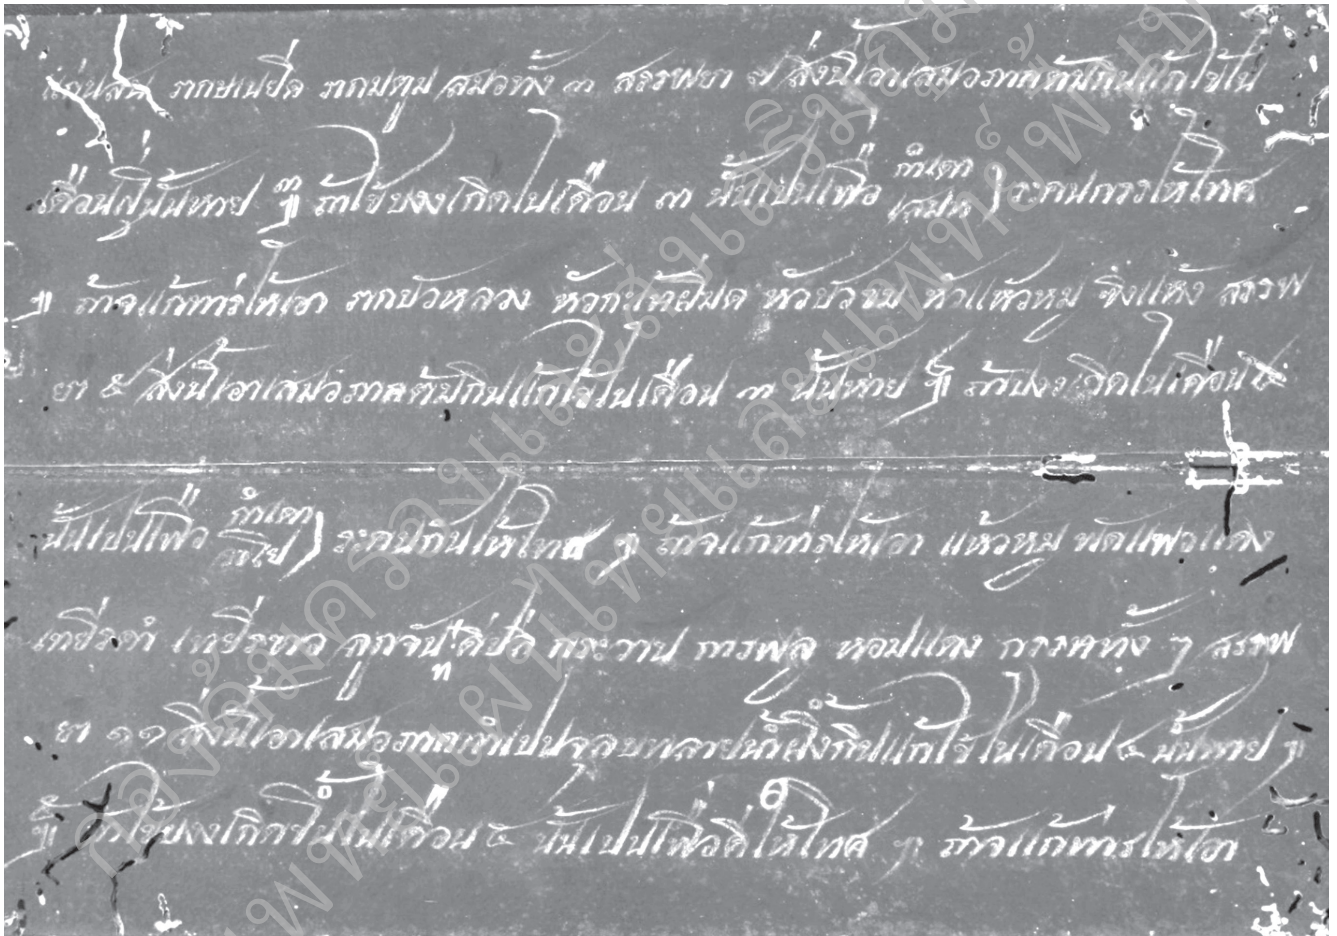 แก่นสน รากขเนยีด รากมตูม สมอทัง ๓ สรรพยา ๗ สิ่งนี้เอาเสมอภาคต้มกินแก้ไข้ใน
เดือนญี่นั้นหาย ๚ ถ้าไข้บงงเกิดในเดือน ๓ นั้นเปนเพื่อ กำเดา เสมห ระคนกรรให้โทศ
๚ ถ้าจแก้ท่ารให้เอา รากบัวหลวง หัวกะเช้าผีมด หัวบัวขม หัวแหัวหมู ขิงแห้ง สรรพ
ยา ๕ สิ่งนี้เอาเสมอภาคต้มกินแก้ไข้ในเดือน ๓ นั้นหาย ๚ ถ้าบงงเกิดในเดือน ๔
นั้นเปนเพื่อ กำเดา ระคนกันให้โทศ ๚ ถ้าจแก้ท่ารให้เอา แห้วหมู พัดแพวแดง
เทยีรดำ เทยีรขาว ลูกจัน ดีปลี กระวาน การพลู หอมแดง สรรพ
ยา ๑๑ สิ่งนี้เอาเสมอภาคทำเปนจุลบทลายน้ำผึ้งกินแก้ไข้ในเดือน ๔ นั้นหาย ๚
๚ ถ้าไข้บงงเกิดขึ้นในเดือน ๕ นั้นเปนเพื่อดีให้โทศ ๚ ถ้าจแก้ท่ารให้เอา